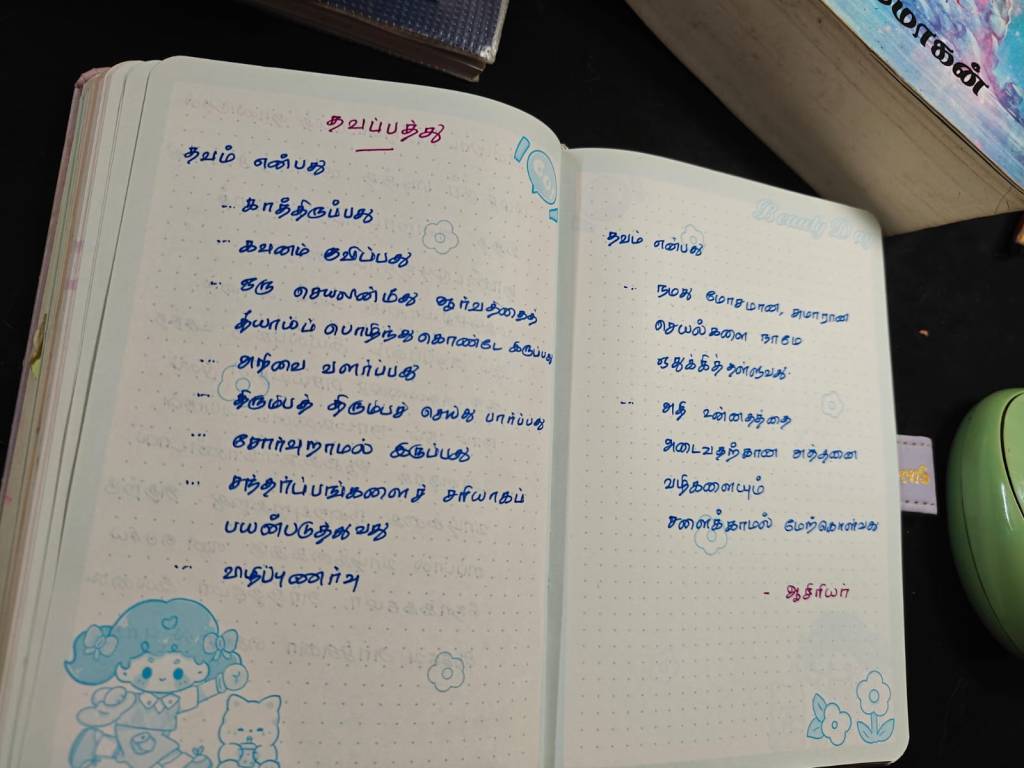 தவப்பத்து
தவம் என்பது
... காத்திருப்பது
... கவனம் குவிப்பது
... ஒரு செயலின்மீது ஆர்வத்தைத்
தீயாய்ப் பொழிந்துகொண்டே இருப்பது
... அறிவை வளர்ப்பது
... திரும்பத் திரும்பச் செய்து பார்ப்பது
... சோர்வுறாமல் இருப்பது
... சந்தர்ப்பங்களைச் சரியாகப்
பயன்படுத்துவது
... விழிப்புணர்வு
Beauty D
தவம் என்பது
... நமது மோசமான, சுமாரான
செயல்களை நாமே
ஒதுக்கித்தள்ளுவது.
... அதி உன்னதத்தை
அடைவதற்கான அத்தனை
வழிகளையும்
சளைக்காமல் மேற்கொள்வது
- ஆசிரியர்
மோகன்